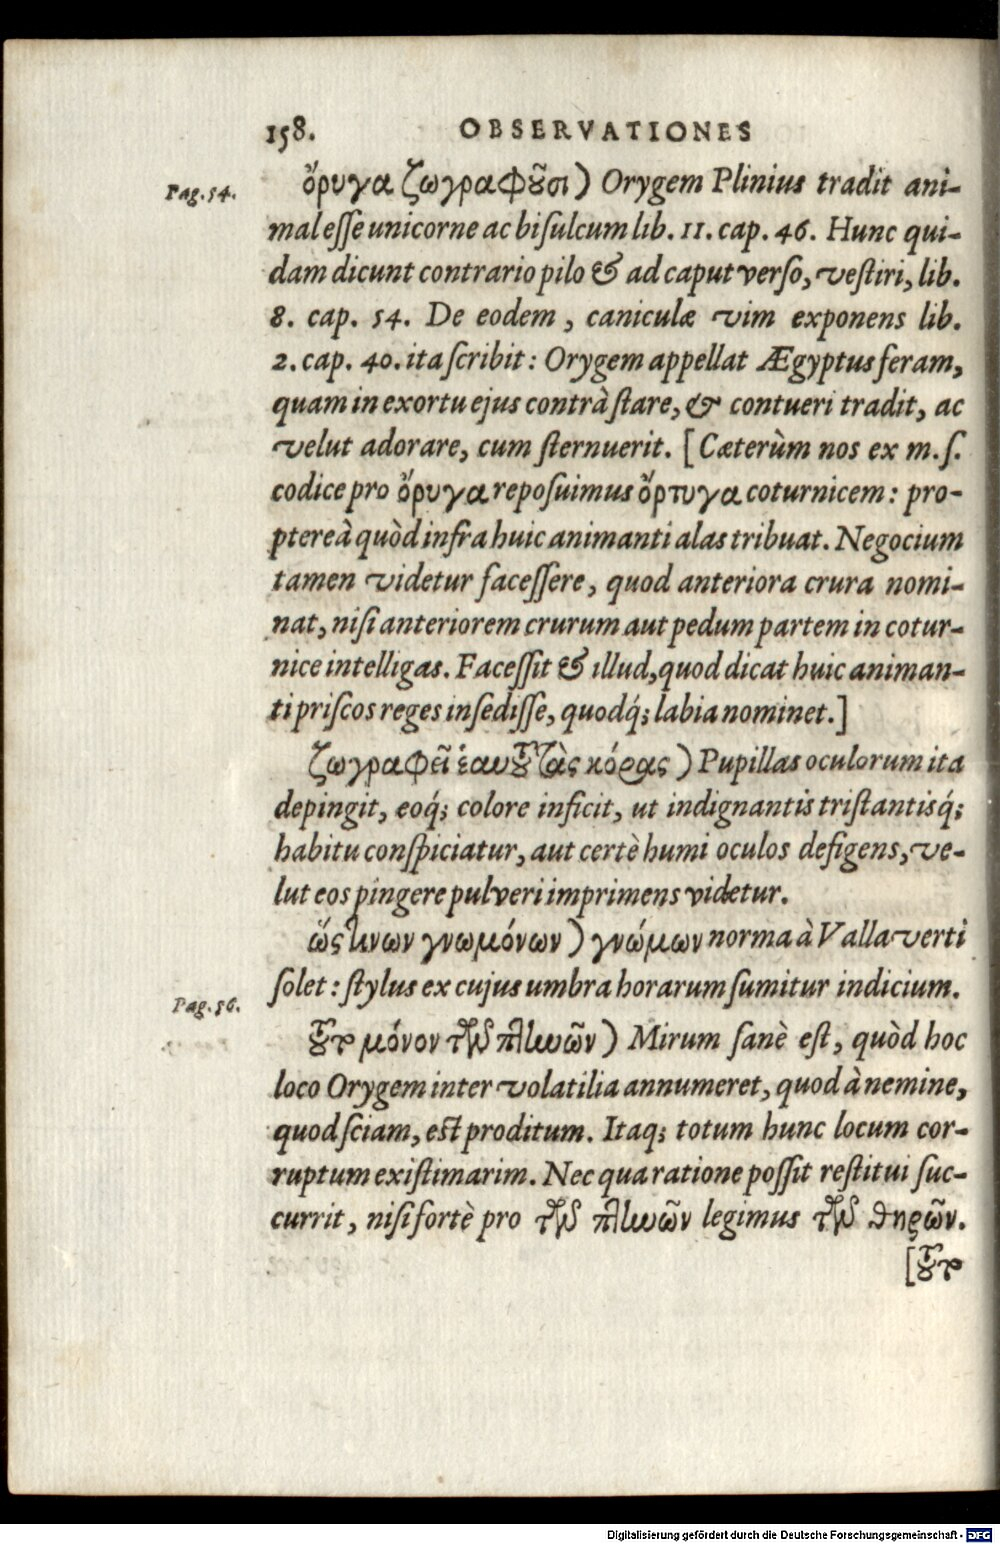 158. OBSERVATIONES
Pag. 54.
ὄρυγα ζωγραφοῦσι) Orygem Plinius tradit ani-
mal esse unicorne ac bisulcum lib. 11. cap. 46. Hunc qui-
dam dicunt contrario pilo & ad caput verso, vestiri, lib.
8. cap. 54. De eodem, caniculæ vim exponens lib.
2. cap. 40. ita scribit: Orygem appellat Ægyptus feram,
quam in exortu ejus contrà stare, & contueri tradit, ac
velut adorare, cum sternuerit. [Cæterùm nos ex m.s.
codice pro ὄρυγα reposuimus ὄρτυγα coturnicem: pro-
ptereà quòd infra huic animanti alas tribuat. Negocium
tamen videtur facessere, quod anteriora crura nomi-
nat, nisi anteriorem crurum aut pedum partem in cotur-
nice intelligas. Facessit & illud, quod dicat huic animan-
ti priscos reges insedisse, quodq́; labia nominet.]
ζωγραφεῖ ἑαυτοῦ τὰς κόρας) Pupillas oculorum ita
depingit, eoq́; colore inficit, ut indignantis tristantisq́;
habitu conspiciatur, aut certè humi oculos defigens, ve-
lut eos pingere pulveri imprimens videtur.
ὥς τινων γνωμόνων) γνώμων norma à Valla verti
solet: stylus ex cujus umbra horarum sumitur indicium.
Pag. 56.
τοῦτο μόνον τῶν πτηνῶν) Mirum sanè est, quòd hoc
loco Orygem inter volatilia annumeret, quod à nemine,
quod sciam, est proditum. Itaq; totum hunc locum cor-
ruptum existimarim. Nec qua ratione possit restitui suc-
currit, nisi fortè pro τῶν πτηνῶν legimus τῶν θηρῶν.
[τοῦτο
Digitalisierung gefördert durch die Deutsche Forschungsgemeinschaft - DFG